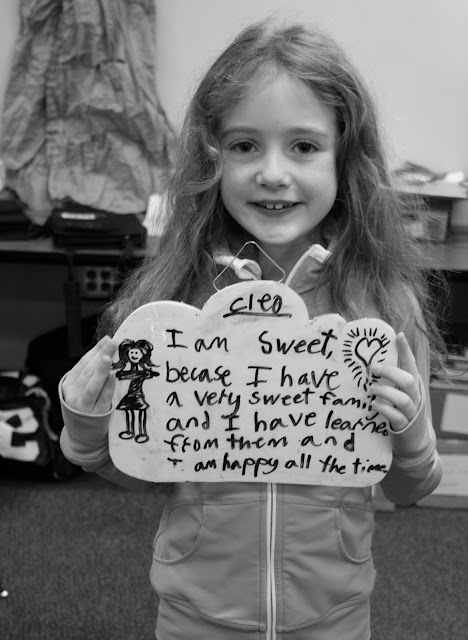 cleo
I am sweet,
becase I have
a very sweet family
and I have learned
from them and
I am happy all the time